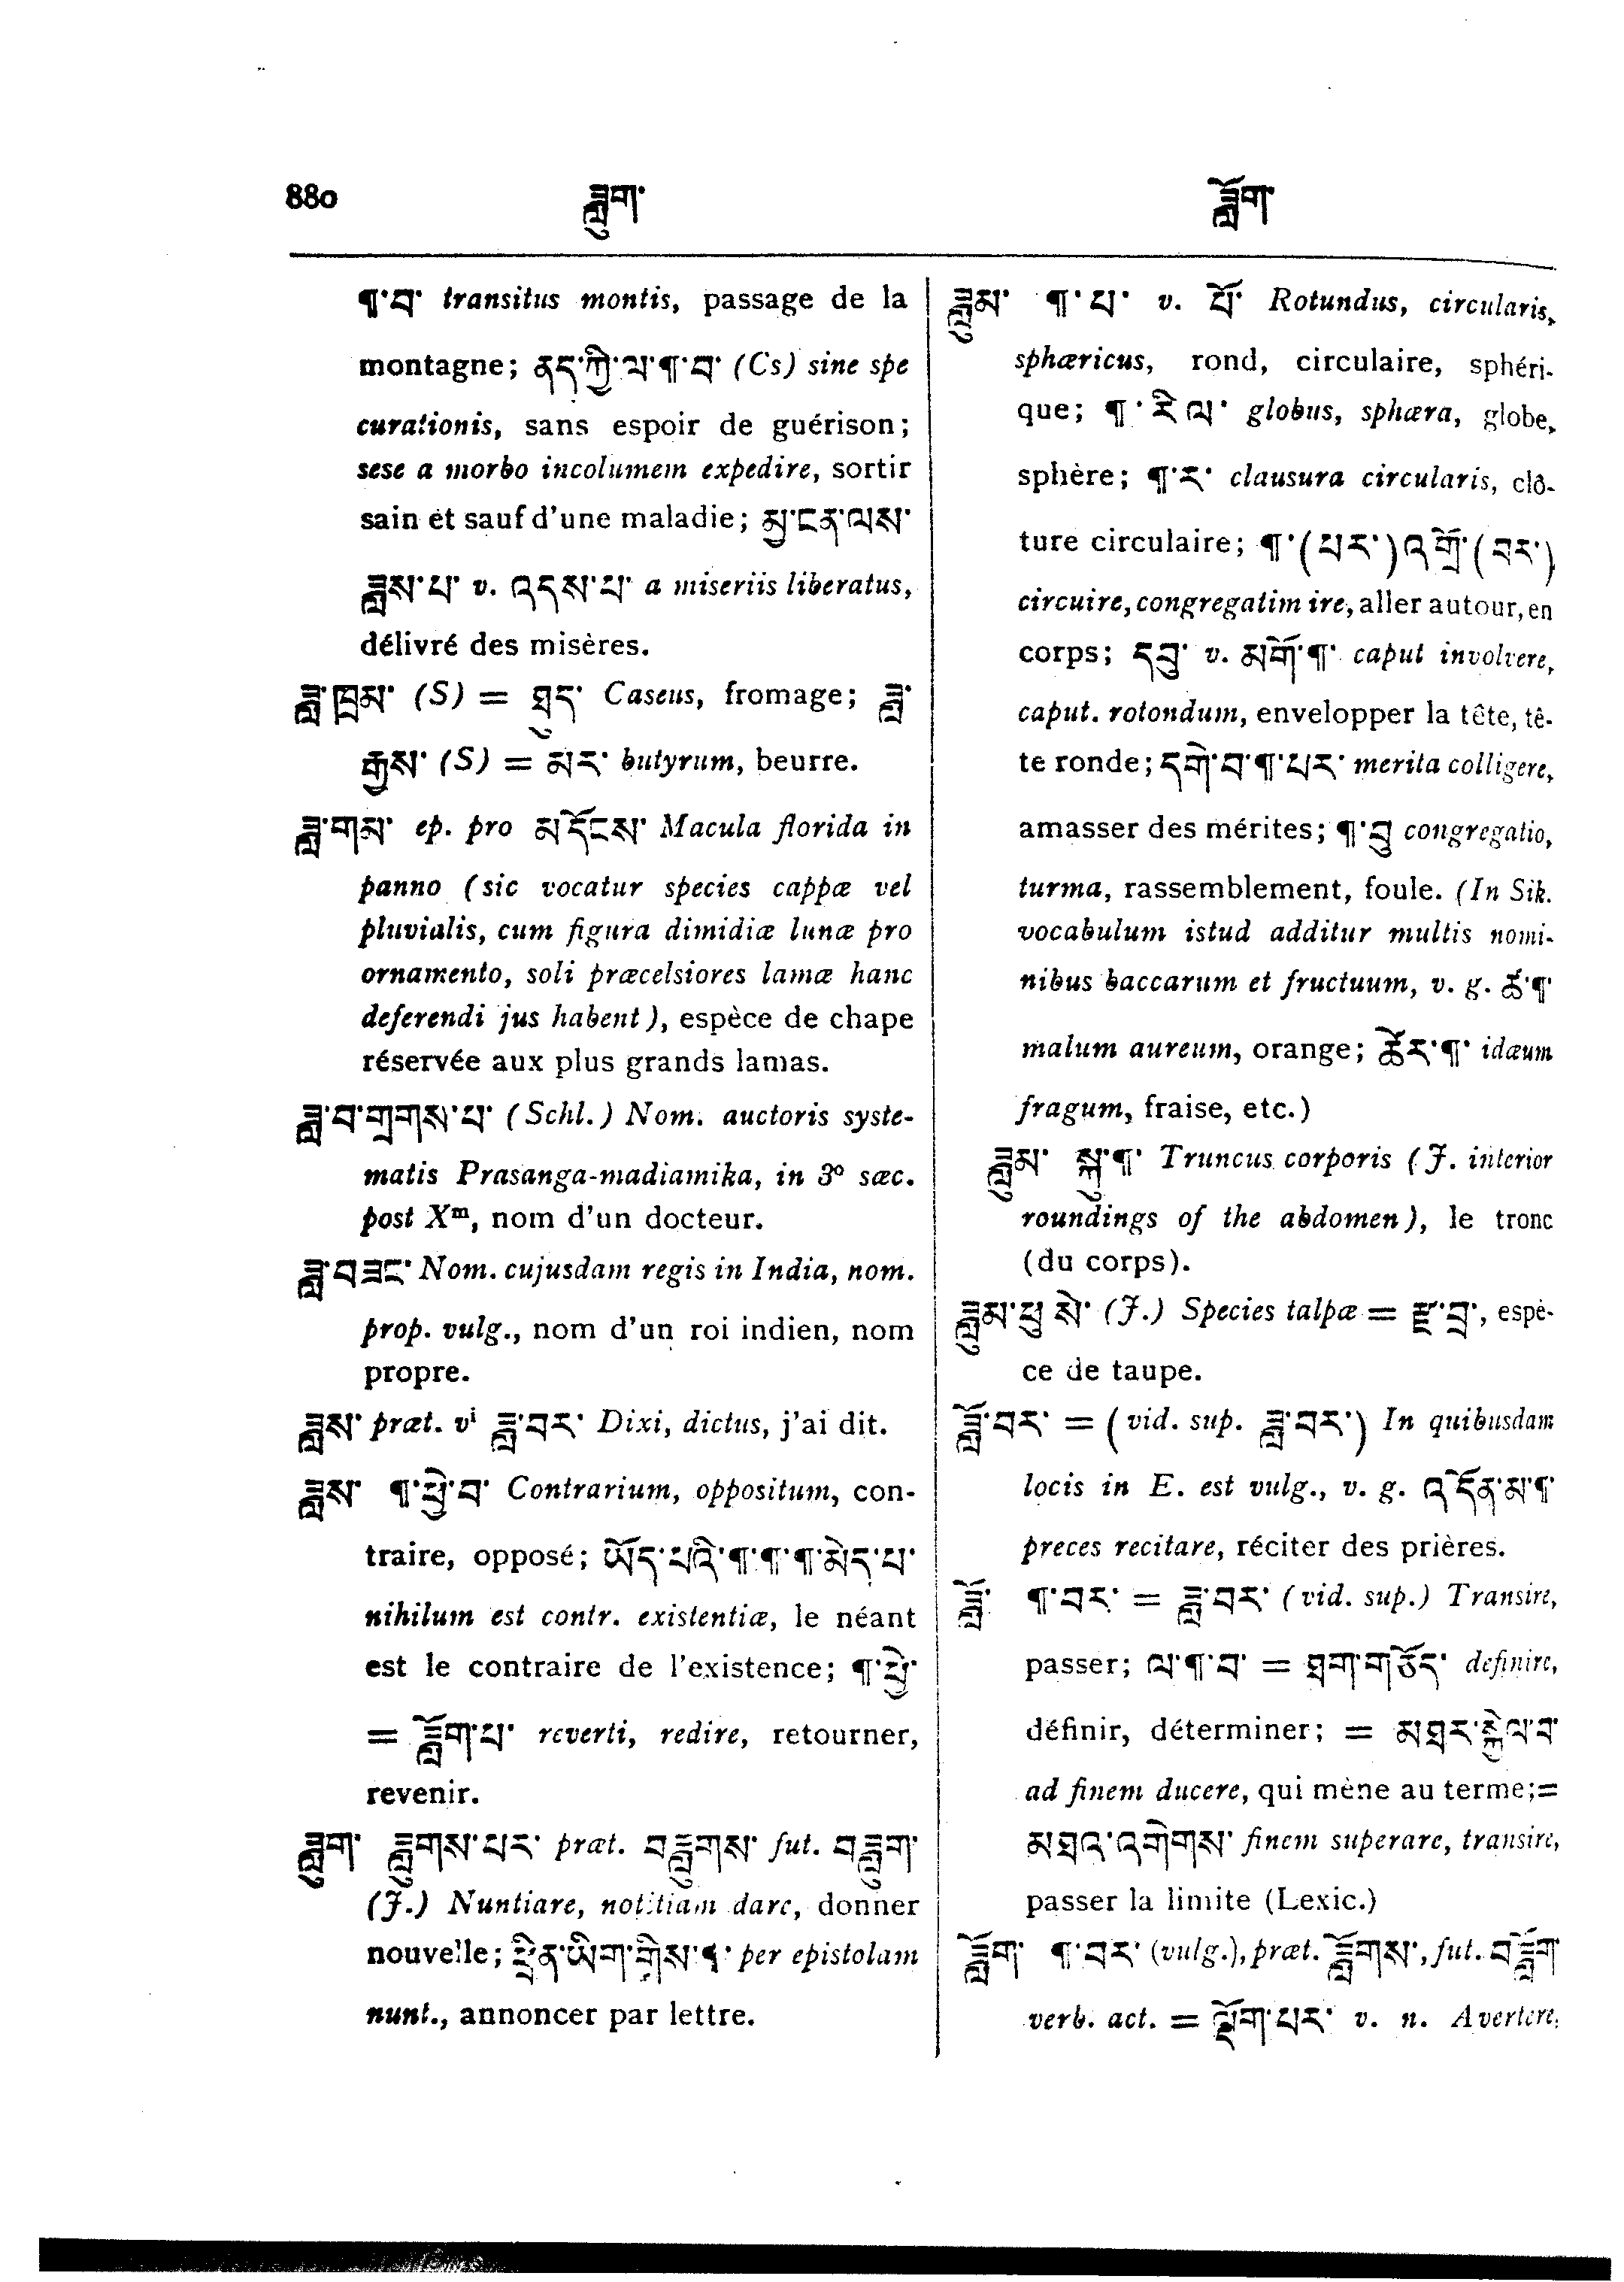 880 ཟླུག་ ཟློག་
¶་བ་ transitus montis, passage de la
montagne; ནད་ཀྱི་ལ་¶་བ་ (Cs) sine spe
curationis, sans espoir de guérison;
sese a morbo incolumem expedire, sortir
sain et sauf d'une maladie; མྱ་ངན་ལས་
ཟླས་པ་ v. འདས་པ་ a miseriis liberatus,
délivré des misères.
ཟླ་ཁྲམ་ (S) = ཐུད་ Caseus, fromage; ཟླ་
རྒྱས་ (S) = མར་ butyrum, beurre.
ཟླ་གམ་ ep. pro མདོངས་ Macula florida in
panno (sic vocatur species cappæ vel
pluvialis, cum figura dimidiæ lunæ pro
ornamento, soli præcelsiores lamæ hanc
deferendi jus habent), espèce de chape
réservée aux plus grands lamas.
ཟླ་བ་གྲགས་པ་ (Schl.) Nom. auctoris syste-
matis Prasanga-madiamika, in 3º sæc.
post Xᵐ, nom d'un docteur.
ཟླ་བཟང་ Nom. cujusdam regis in India, nom.
prop. vulg., nom d'un roi indien, nom
propre.
ཟླས་ præt. vⁱ ཟླ་བར་ Dixi, dictus, j'ai dit.
ཟླས་ ¶་ཕྱེ་བ་ Contrarium, oppositum, con-
traire, opposé; ཡོད་པའི་¶་¶་¶་མེད་པ་
nihilum est contr. existentiæ, le néant
est le contraire de l'existence; ¶་ཕྱེ་
= ཟློག་པ་ reverti, redire, retourner,
revenir.
ཟླུག་ ཟླུགས་པར་ præt. བཟླུགས་ fut. བཟླུག་
(J.) Nuntiare, notitiam dare, donner
nouvelle; ཕྲིན་ཡིག་གིས་¶་ per epistolam
nunt., annoncer par lettre.
ཟླུམ་ ¶་པ་ v. པོ་ Rotundus, circularis,
sphæricus, rond, circulaire, sphéri-
que; ¶་རིལ་ globus, sphæra, globe,
sphère; ¶་ར་ clausura circularis, clô-
ture circulaire; ¶་(པར་)འགྲོ་(བར་)
circuire, congregatim ire, aller autour, en
corps; དབུ་ v. མགོ་¶་ caput involvere,
caput. rotondum, envelopper la tête, tê-
te ronde; དགེ་བ་¶་པར་ merita colligere,
amasser des mérites; ¶་བུ congregatio,
turma, rassemblement, foule. (In Sik.
vocabulum istud additur multis nomi-
nibus baccarum et fructuum, v. g. ཚ་¶་
malum aureum, orange; ཚེར་¶་ idæum
fragum, fraise, etc.)
ཟླུམ་ སྐུ་¶་ Truncus corporis (J. interior
roundings of the abdomen), le tronc
(du corps).
ཟླུམ་ཕུ་སེ་ (J.) Species talpæ = རྫ་བྲ་, espè-
ce de taupe.
ཟློ་བར་ = (vid. sup. ཟླ་བར་) In quibusdam
locis in E. est vulg., v. g. འདོན་མ་¶་
preces recitare, réciter des prières.
ཟློ་ ¶་བར་ = ཟླ་བར་ (vid. sup.) Transire,
passer; ལ་¶་བ་ = ཐག་གཅོད་ definire,
définir, déterminer; = མཐར་སྐྱེལ་བ་
ad finem ducere, qui mène au terme; =
མཐའ་འགེགས་ finem superare, transire,
passer la limite (Lexic.)
ཟློག་ ¶་བར་ (vulg.), præt. ཟློགས་, fut. བཟློག་
verb. act. = ལྡོག་པར་ v. n. Avertere,